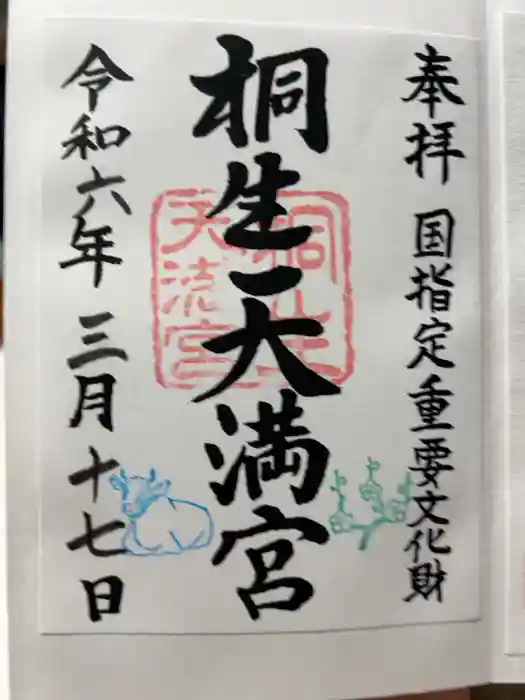 奉拝 国指定重要文化財
桐生天満宮
桐生
天満宮
令和六年 三月十七日